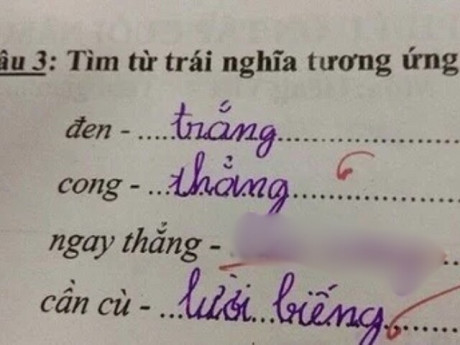 âu 3: Tìm từ trái nghĩa tương ứng
đen - ....trắng..............................
cong - ...thẳng...........................
ngay thẳng - ..
cần cù - ...lười...biếng............